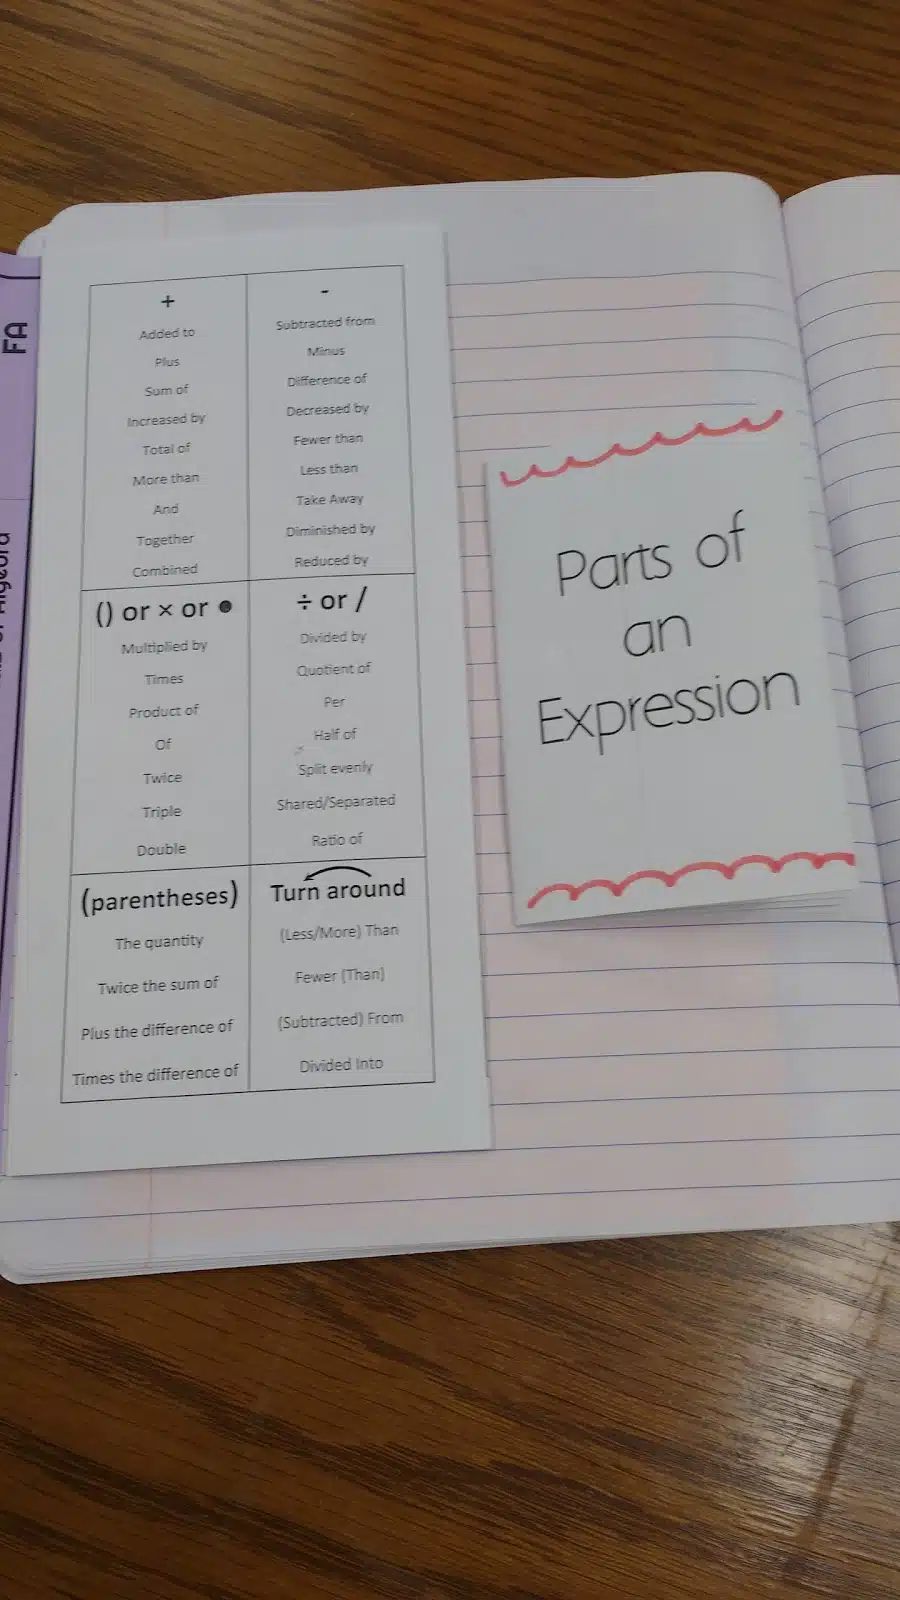 FA
+
Added to
Plus
Sum of
Increased by
Total of
More than
And
Together
Combined
-
Subtracted from
Minus
Difference of
Decreased by
Fewer than
Less than
Take Away
Diminished by
Reduced by
() or × or •
Multiplied by
Times
Product of
Of
Twice
Triple
Double
÷ or /
Divided by
Quotient of
Per
Half of
Split evenly
Shared/Separated
Ratio of
(parentheses)
The quantity
Twice the sum of
Plus the difference of
Times the difference of
Turn around
(Less/More) Than
Fewer (Than)
(Subtracted) From
Divided Into
Parts of
an
Expression